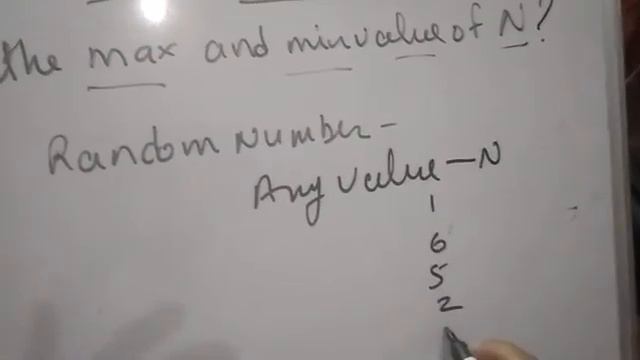 the max and min value of N?
Random Number -
Any value - N
1
6
5
2